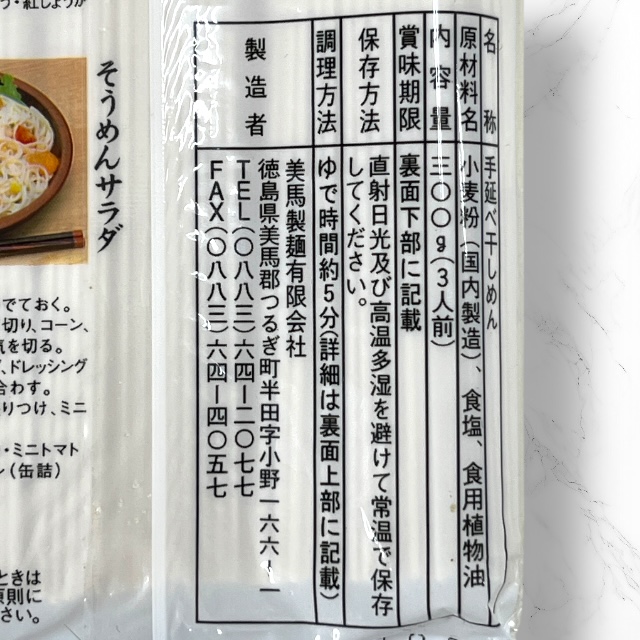 名称 手延べ干しめん
原材料名 小麦粉(国内製造)、食塩、食用植物油
内容量 三〇〇g(3人前)
賞味期限 裏面下部に記載
保存方法 直射日光及び高温多湿を避けて常温で保存
してください。
調理方法 ゆで時間約5分(詳細は裏面上部に記載)
製造者 美馬製麺有限会社
徳島県美馬郡つるぎ町半田字小野一六六ー一
TEL(〇八八三)六四ー二〇七七
FAX(〇八八三)六四ー四〇五七
そうめんサラダ
う・紅しょうが
でておく。
切り、コーン、
気を切る。
、ドレッシング
合わす。
りつけ、ミニ
・ミニトマト
ン(缶詰)
ときは
原則に
さい。